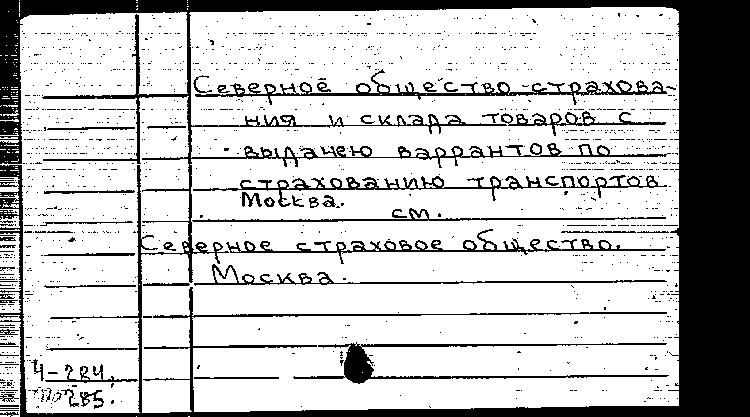 Северное общество страхова-
ния и склада товаров с
выдачею варрантов по
страхованию транспортов
Москва.
см.
Северное страховое общество.
Москва.
4-284,
285.